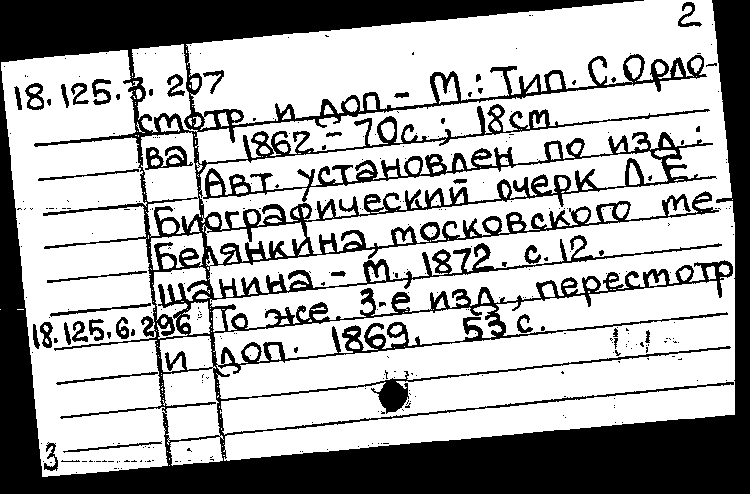 2
18.125.3.207
стотр. и доп. - М.: Тип. С. Орло-
ва, 1862. - 70с.; 18см.
Авт. установлен по изд.:
Биографический очерк Л.Е.
Белянкина, московского ме-
щанина. - М., 1872. с. 12.
18.125.6.296 То же. 3-е изд., перестотр
и доп. 1869. 53 с.
3